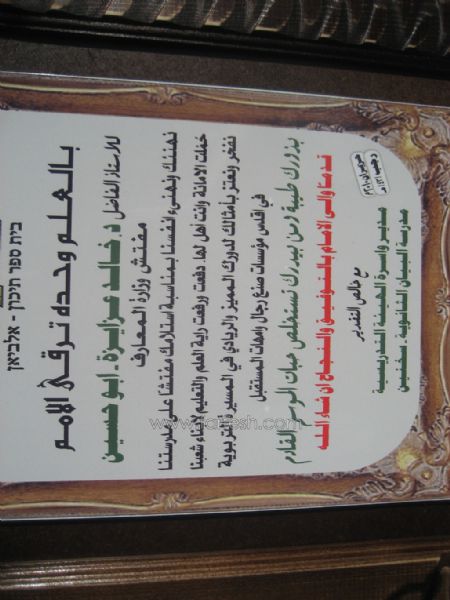 בית ספר תיכון - אלביאן
بالعلم وحده ترقى الأمم
للأستاذ الفاضل د. خالد عزايزة - ابو حسين
مفتش وزارة المعارف
نهنئك ونهنىء انفسنا بمناسبة استلامك مفتشا على مدرستنا
حملت الامانة وانت أهل لها. دفعت ورفعت راية العلم والتعليم لأبناء شعبنا
نفتخر ونعتز بأمثالك لدورك المميز والريادي في المسيرة التربوية
في اقدس مؤسسات صنع رجال وامهات المستقبل
بذورك طيبة ومن بيدرك نستخلص حبات الموسم القادم
قدما والى الامام بالتوفيق والنجاح ان شاء الله
مع خالص التقدير
مدير واسرة الهيئة التدريسية
مدرسة البيان الثانوية - سخنين
حزيران ٢٠١٠م
رجب ١٤٣١هـ